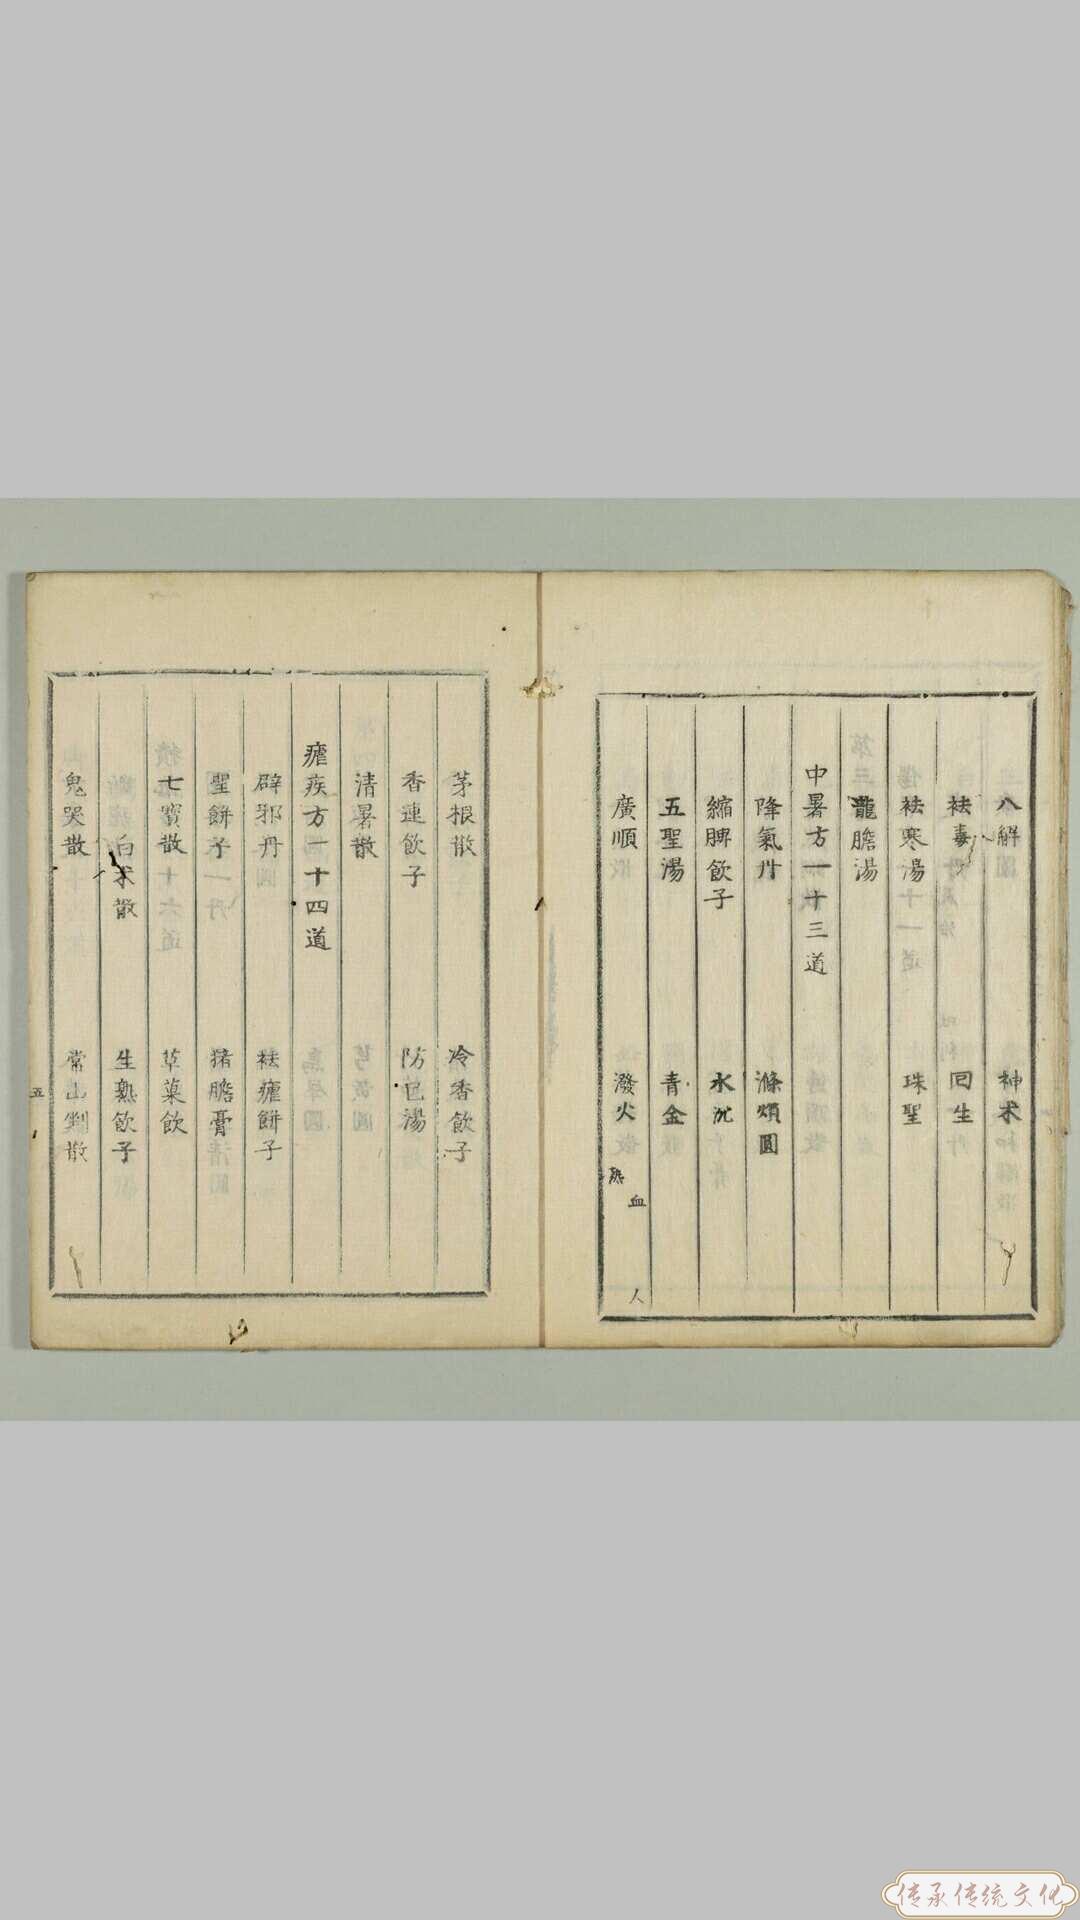 八解圓 神术
祛毒 回生
祛寒湯 珠聖
龍膽湯
中暑方一十三道
降氣丹 滌煩圓
縮脾飲子 水沉
五聖湯 青金
廣順 潑火
熱血
人
茅根散 冷香飲子
香連飲子 防已湯
清暑散
瘧疾方一十四道
辟邪丹 祛瘧餅子
聖餅子 猪膽膏
七寳散 草菓飲
白术散 生熟飲子
鬼哭散 常山剉散
五
传承传统文化